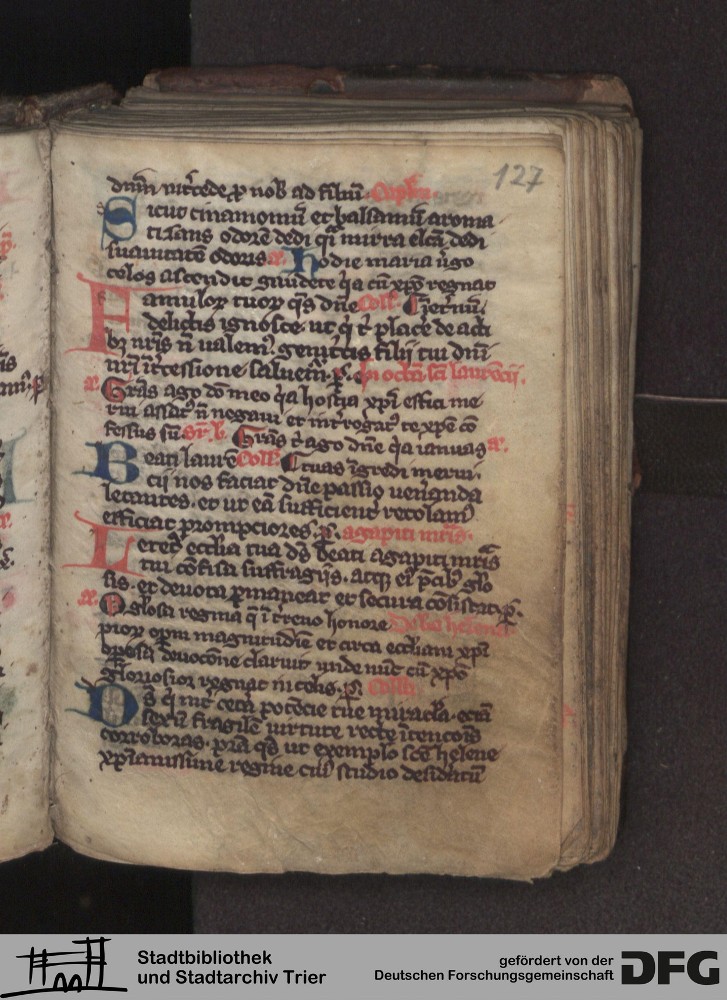 127
dnm nr̄i cede p nob ad filiū. Capl'm
Sicut cinamomū et balsamū aroma
tizans odorē dedi q̄i mirra elcā dedi
suauitatē odoris a. Hodie maria ūgo
celos ascendit gaudete q̄a cū xp̄o regnat
Famuloꝝ tuoꝝ q̄s dn̄e Coll.
delictis ignosce ut q̇ t̄ placē de acti
bꝫ nr̄is n̄ valem⁹. genit̄cis filij tui dn̄i
nr̄i īt̄cessione saluem̄. p̱. In octa sc̄i laurecij.
a. Gr̄as ago dō meo q̄a hostia xp̄i effici me
rui accusat⁹ n̄ negaui et int̄rogat⁹ te xp̄e cō
fessus sū Gr̄as t̄ ago dn̄e q̄a ianuas a.
Beati laurē Coll. tuas īgredi merui.
cij nos faciat dn̄e passio uen̄anda
letantes. et ut eā sufficient̄ recolam⁹
efficiat prompciores. p̱. agapiti mr̄is.
Letet̄ eccl̄ia tua ds̄ beati agapiti mr̄is
tui cōfisa suffragijs. atqꝫ ei⁹ p̄cibꝫ glo
sa. et deuota p̱maneat et secura cōsistat. p̱.
a. O gl̄osa regina q̄ ī t̄reno honore De bā helena
prioꝝ opm̄ magnitudīe et circa eccl̄iam xp̄i
deuocōne claruit unde nūc cū xp̄o
gl̄oriosior regnat in celis. p̱. Coll'a
Ds̄ q̇ int̄ cet̄a potēcie tue miracl̄a. eciā
sexū fragilē uirtute recte ītencōis
corroboras. pr̄a q̄s ut exemplo sc̄e helene
xp̄ianissime regine cui⁹ studio desid̄atū
Stadtbibliothek
und Stadtarchiv Trier
gefördert von der
Deutschen Forschungsgemeinschaft DFG